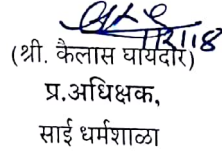 1/2/18
(श्री. कैलास घायदार)
प्र.अधिक्षक,
साई धर्मशाळा